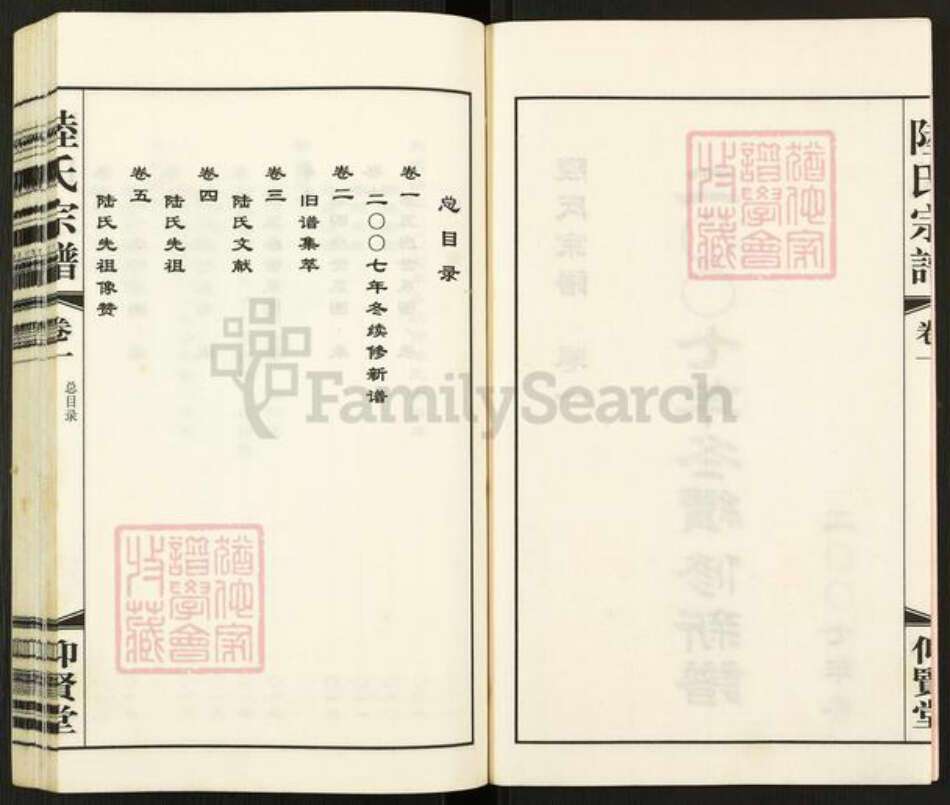 陸氏宗譜
卷一
仰賢堂
总目录
卷一
二〇〇七年冬续修新谱
卷二
旧谱集萃
卷三
陆氏文献
卷四
陆氏先祖
卷五
陆氏先祖像赞
陸氏宗譜
卷一
总目录
仰賢堂
猶他家
譜學會
收藏
猶他家
譜學會
收藏
FamilySearch